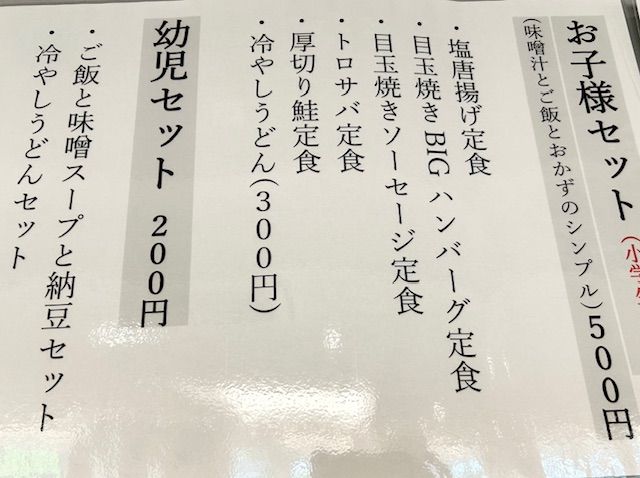 お子様セット(小学
(味噌汁とご飯とおかずのシンプル)500円
・塩唐揚げ定食
・目玉焼きBIGハンバーグ定食
・目玉焼きソーセージ定食
・トロサバ定食
・厚切り鮭定食
・冷やしうどん(300円)
幼児セット 200円
・ご飯と味噌スープと納豆セット
・冷やしうどんセット